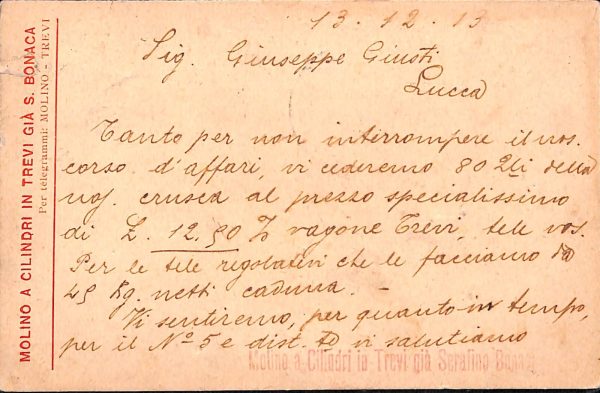 MOLINO A CILINDRI IN TREVI GIÀ S. BONACA
Per telegrammi: MOLINO - TREVI
13.12.13
Sig. Giuseppe Giusti
Lucca
Tanto per non interrompere il nos.
corso d'affari, vi cederemo 80 Qli della
nos. crusca al prezzo specialissimo
di £. 12.50 % vagone Trevi, tele vos.
Per le tele regolatevi che le facciamo da
45 Kg. netti caduna.-
Vi sentiremo, per quanto in tempo,
per il Nº 5 e dist. vi salutiamo
Molino a Cilindri in Trevi già Serafino Bonaca